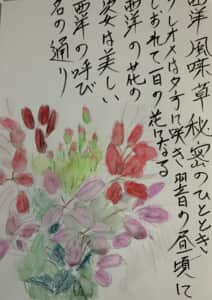 西洋風味草秘密のひととき
クレオメは夕方に咲き翌日の昼頃に
しおれて一日の花になる
西洋の花の
姿は美しい
西洋の呼び
名の通り